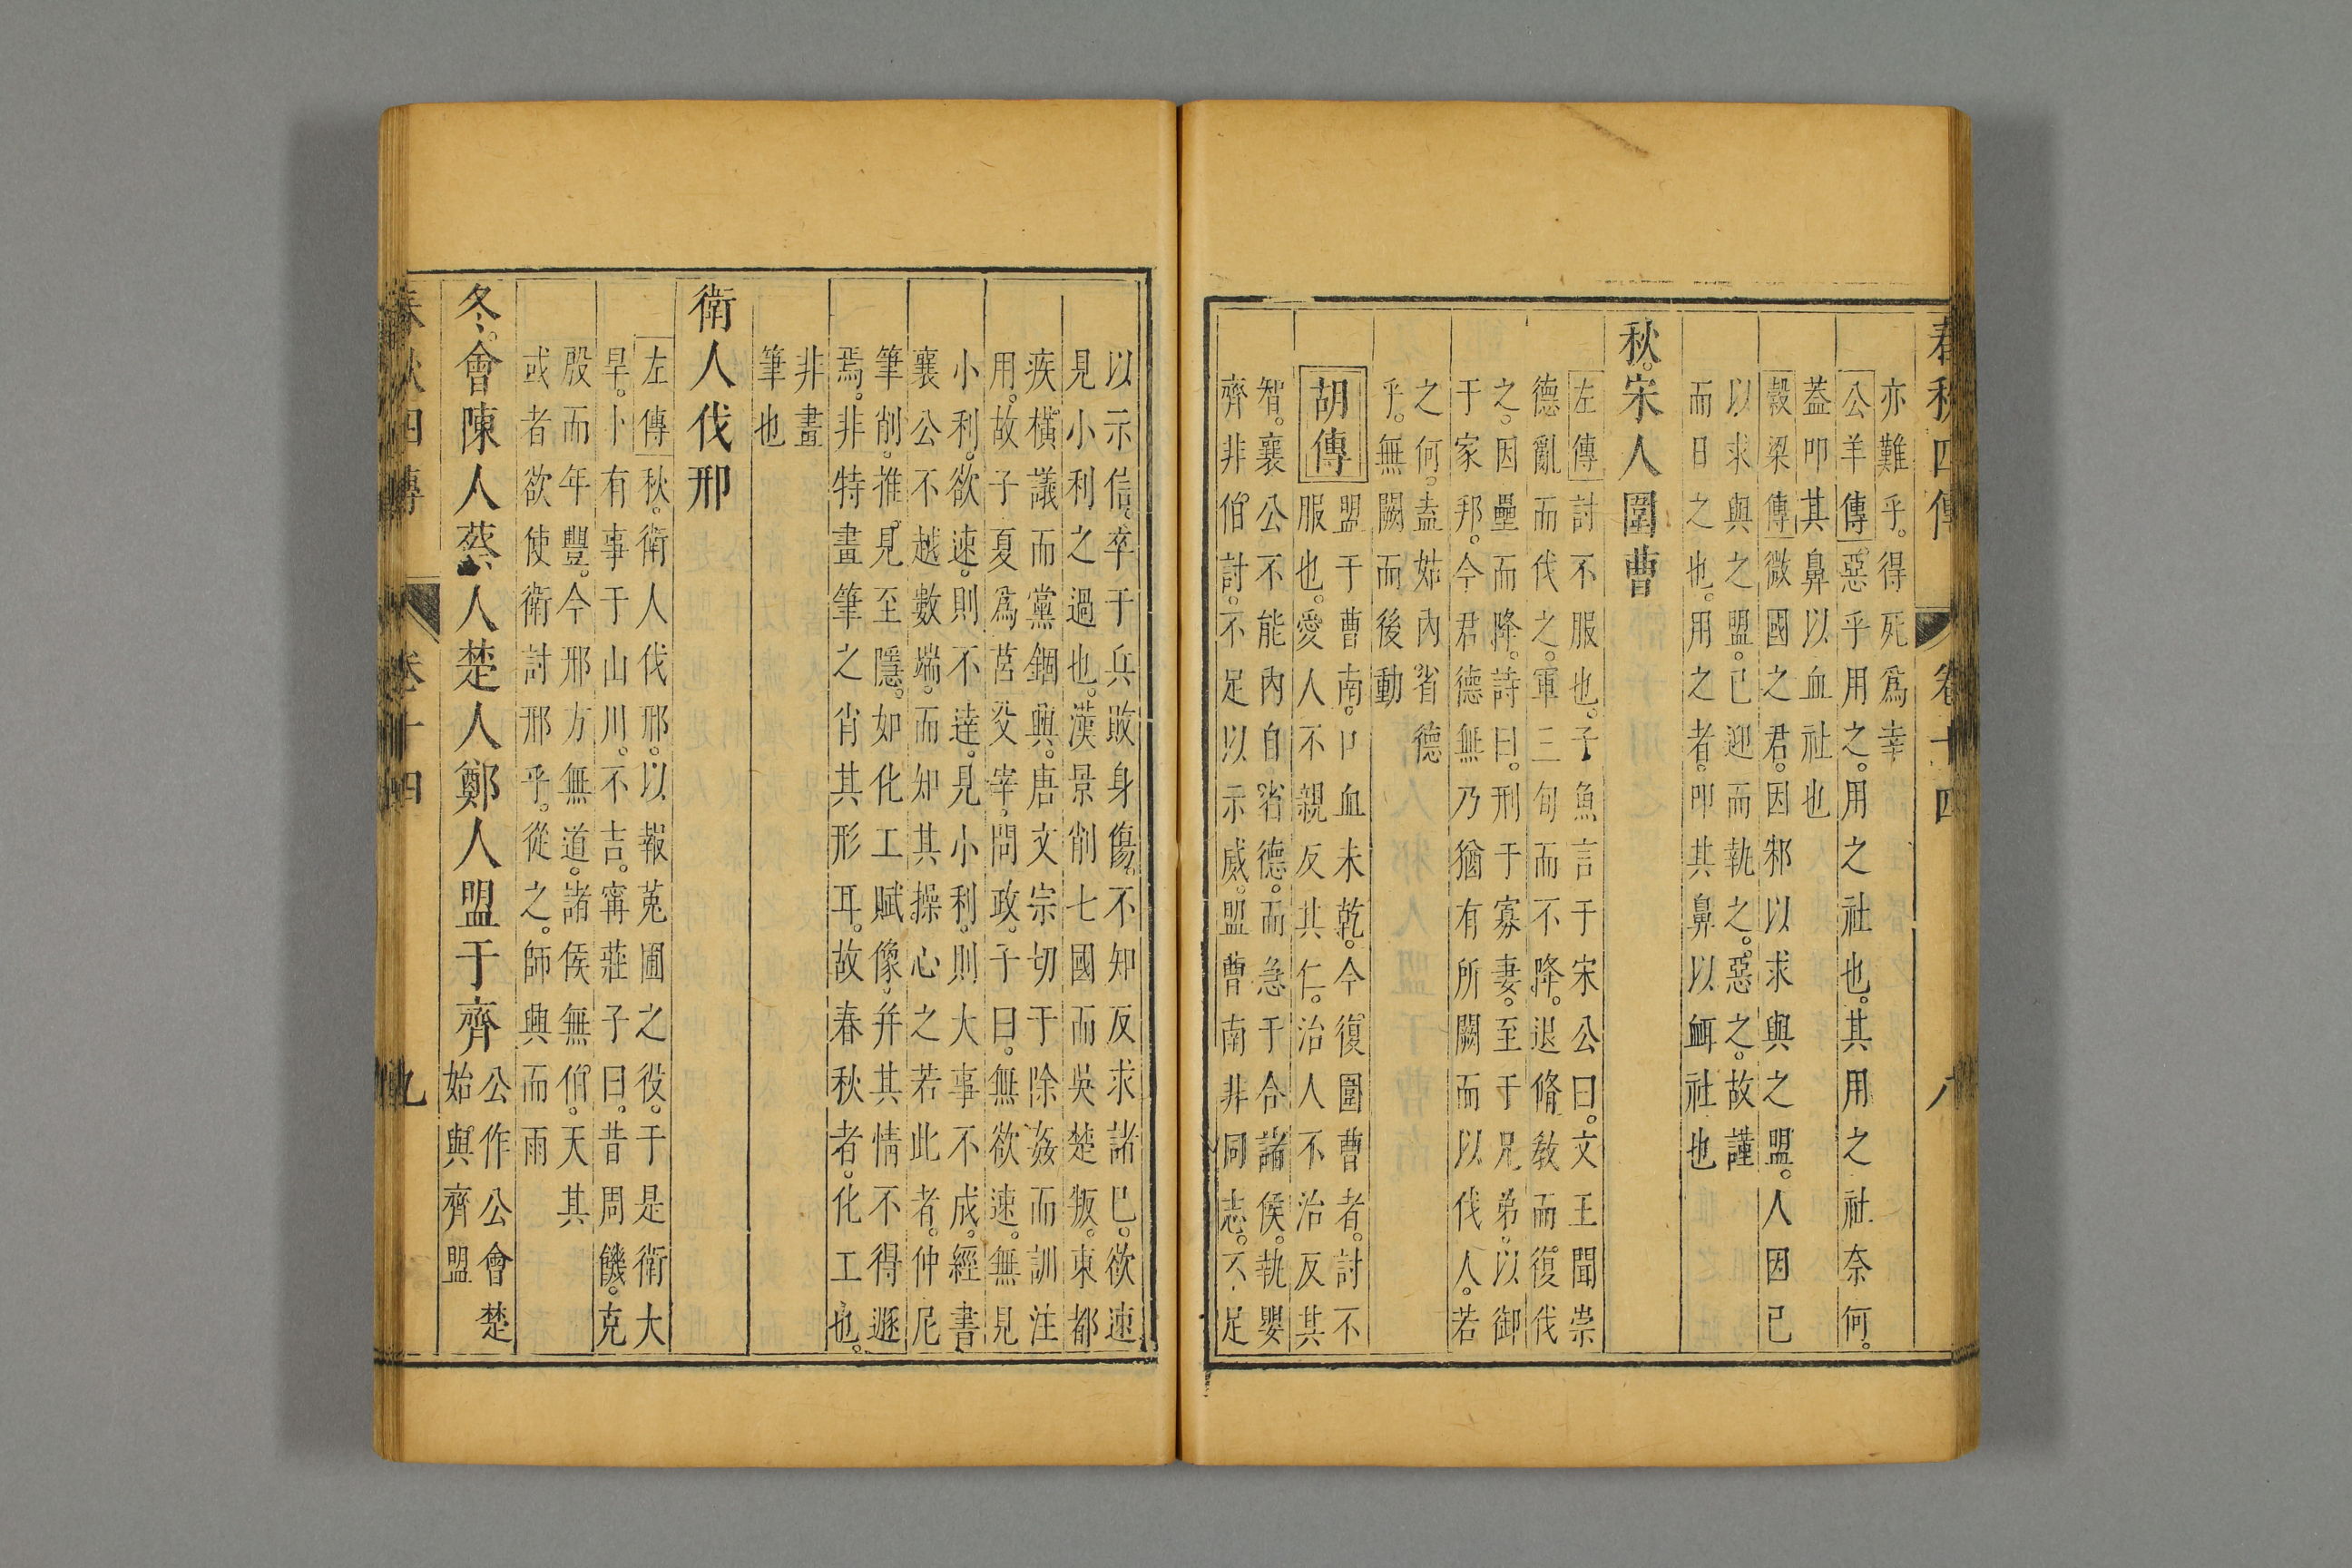 春秋四傳 卷十四 八
亦難乎。得死爲幸
公羊傳惡乎用之。用之社也。其用之社奈何。
葢叩其鼻以血社也
穀梁傳微國之君。因邾以求與之盟。人因已
以求與之盟。已迎而執之。惡之。故謹
而日之也。用之者。叩其鼻以衈社也
秋。宋人圍曹
左傳討不服也。子魚言于宋公曰。文王聞崇
德亂而伐之。軍三旬而不降。退脩敎而復伐
之。因壘而降。詩曰。刑于寡妻。至于兄弟。以御
于家邦。今君德無乃猶有所闕而以伐人。若
之何。盍姑內省德
乎。無闕而後動
胡傳盟于曹南。口血未乾。今復圍曹者。討不
服也。愛人不親反其仁。治人不治反其
智。襄公不能內自省德。而急于合諸侯。執嬰
齊非伯討。不足以示威。盟曹南非同志。不足
以示信。卒于兵敗身傷。不知反求諸已。欲速
見小利之過也。漢景削七國而吳楚叛。東都
疾橫議而黨錮興。唐文宗切于除姦而訓注
用。故子夏爲莒父宰。問政。子曰。無欲速。無見
小利。欲速。則不達。見小利。則大事不成。經書
襄公不越數端。而知其操心之若此者。仲尼
筆削。推見至隱。如化工賦像。幷其情不得遯
焉。非特畫筆之肖其形耳。故春秋者。化工也。
非畫
筆也
衛人伐邢
左傳秋。衛人伐邢。以報菟圃之役。于是衛大
旱。卜有事于山川。不吉。甯莊子曰。昔周饑。克
殷而年豐。今邢方無道。諸侯無伯。天其
或者欲使衛討邢乎。從之。師興而雨
冬。會陳人蔡人楚人鄭人盟于齊
公作公會楚
始與齊盟
春秋四傳 卷十四 九